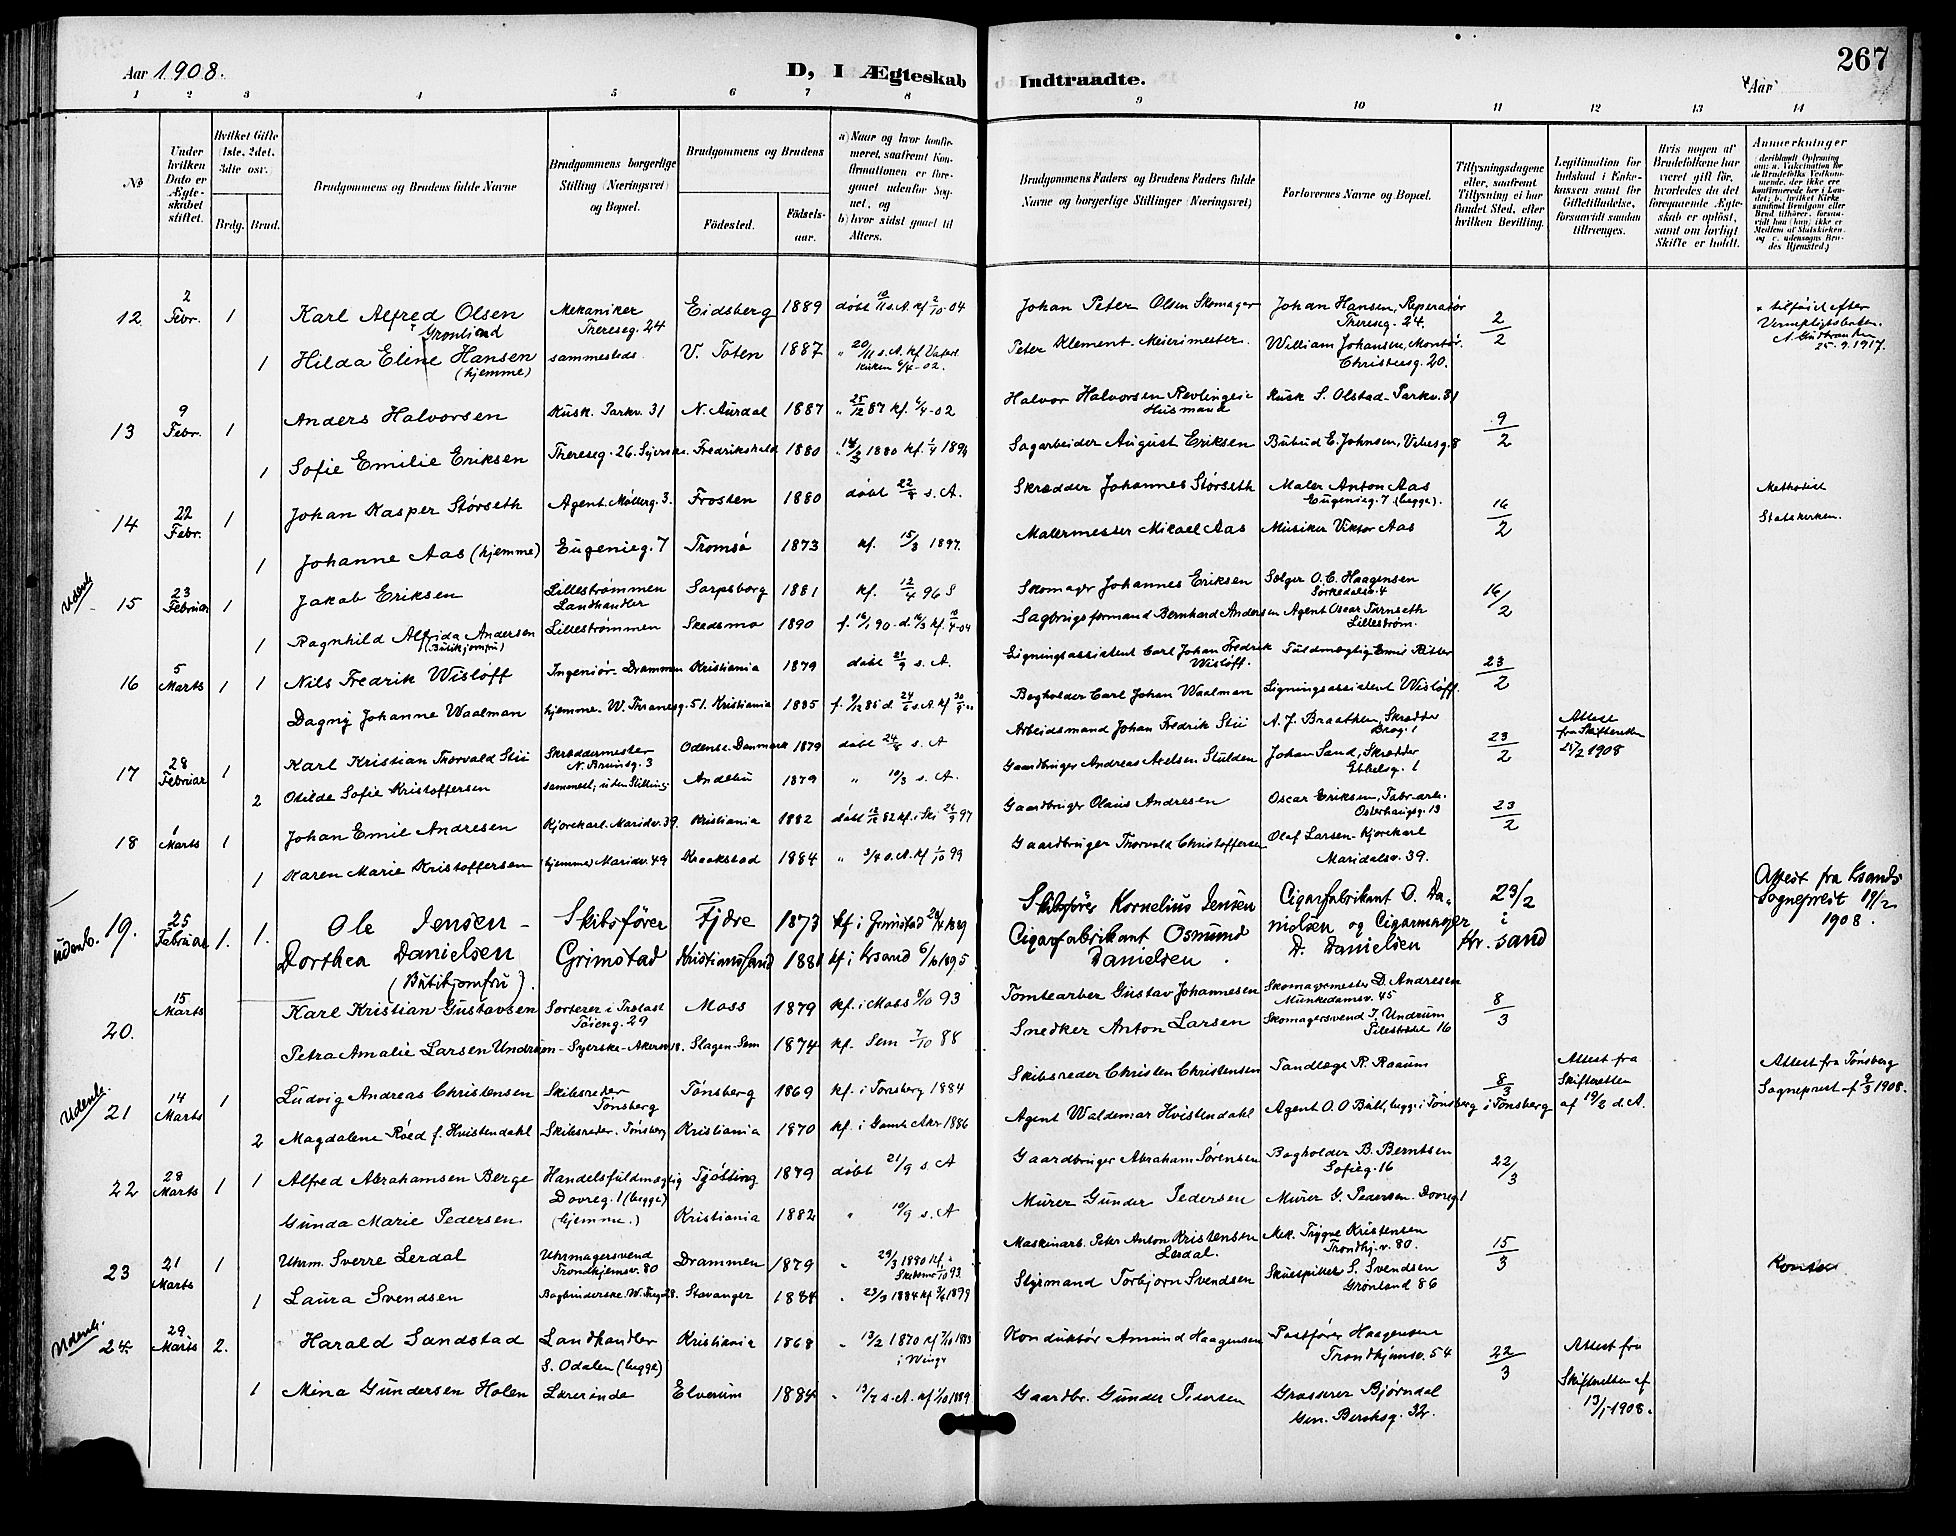 Aar 1908.
D, I Ægteskab Indtraadte.
267
Aar
1 2 3 4 5 6 7 8 9 10 11 12 13 14
No
Under hvilken Dato er Ægteskabet stiftet.
Hvilket Gifte (1ste, 2det, 3die osv.
Brdg. Brud.
Brudgommens og Brudens fulde Navne
Brudgommens borgerlige Stilling (Næringsvei) og Bopæl.
Brudgommens og Brudens
Födested. Födsels-aar.
a) Naar og hvor konfirmeret, saafremt Konfirmationen er foregaaet udenfor Sognet, og
b) hvor sidst gaaet til Alters.
Brudgommens Faders og Brudens Faders fulde Navne og borgerlige Stillinger (Næringsvei)
Forlovernes Navne og Bopæl.
Tillysningsdagene eller, saafremt Tillysning ei har fundet Sted, efter hvilken Bevilling.
Legitimation for Indskud i Enkekassen samt for Giftetilladelse, forsaavidt saadan tiltrænges.
Hvis nogen af Brudefolkene har været gift för, hvorledes da det foregaaende Ægteskab er oplöst, samt om lovligt Skifte er holdt.
Anmerkninger
12 2 Febr. 1 Karl Alfred Olsen Mekaniker Thereseg. 24 Eidsberg 1889 døbt 10/11 s.A. kf 2/10-04 Johan Peter Olsen Skomager Johan Hansen, Reperatør Thereseg. 24. 2/2 x tilføiet efter
Grønlund
1 Hilda Eline Hansen (hjemme) sammesteds V. Toten 1887 " 20/11 s.A. kf. Peter Klement Meierimester William Johansen, Montør. Christiesg. 20. 25.9.1917.
13 9 Febr. 1 Anders Halvorsen Kusk. Parkv. 31 N. Aurdal 1887 " 25/12 87 kf. 6/4-02 Halvor Halvorsen Husmand Kusk S. Olstad Parkv. 31 9/2
1 Sofie Emilie Eriksen Thereseg. 26. Syerske. Fredrikshald 1880 1880 kf. 1/4 1894 Sagarbeider August Eriksen Bubud E. Johnsen, Vibesg. 8
14 22 Febr. 1 Johan Kasper Størseth Agent. Møllerg. 3. Frosten 1880 døbt 22/8 s. A. Skrædder Johannes Størseth Maler Anton Aas Eugenieg. 7 (begge). 16/2 Methodist
1 Johanne Aas (hjemme) Eugenieg. 7 Tromsø 1873 kf. 15/3 1897. Malermester Mikael Aas Musiker Viktor Aas Statskirken.
Udenb. 15 23 Februar 1 Jakob Eriksen Lillestrømmen Landhandler Sarpsborg 1881 kf. 12/4 96 S Skomager Johannes Eriksen Sælger O. C. Haagensen Sørkedalsv. 4 16/2
1 Ragnhild Alfrida Andersen (Butikjomfru) Lillestrømmen Skedsmo 1890 f. 16/1 90 - d. 16/3 kf. Sagbrugsformand Bernhard Andersen Agent Oscar Tærnseth Lillestrøm.
16 5 Marts 1 1 Nils Fredrik Wisløff Ingeniør Drammen Kristiania 1879 døbt 21/9 s. A. Ligningsassistent Carl Johan Fredrik Wisløff. Fuldmægtig Ritter 23/2
Dagny Johanne Waalman hjemme. W. Thranesg. 51. Kristiania 1885 Bogholder Carl Johan Waalman Ligningsassistent Wisløff.
17 28 Februar 1 Karl Kristian Thorvald Stii Skræddermester N. Bruunsg. 3 Odense. Danmark 1879 døbt 24/8 s. A Arbeidsmand Johan Fredrik Stii A. J. Braathen, Skrædder 23/2 Attest fra Skifteretten 25/2 1908
2 Otilde Sofie Kristoffersen sammest, uden Stilling Andebu 1879 " 10/3 s. A. Gaardbruger Andreas Axelsen Stulden Johan Sand, Skrædder Ebbelsg. 1
18 Marts 1 Johan Emil Andresen Kjørekarl. Maridv. 39. Kristiania 1882 døbt 12/12 82 kf. i Ski 24/9 97 Gaardbruger Olaus Andresen Oscar Eriksen, Fabr.arb. Osterhausg. 13 23/2
1 Karen Marie Kristoffersen (hjemme) Maridv. 49 Kraakstad 1884 " 3/4 s.A. kf 1/10 99 Gaardbruger Thorvald Christoffersen Olaf Larsen - Kjørekarl Maridalsv. 39.
udenb. 19. 25 Februar 1. 1. Ole Jensen - Skibsfører Fjære 1873 kf i Grimstad 28/4 1889 Skibsfører Kornelius Jensen Cigarfabrikant O. Da- 23/2 Attest fra Ksands Sognepræst 19/2 1908.
Dorthea Danielsen (Butikjomfru). Grimstad Kristianssand 1881 kf i Krsand 6/10 1895 Cigarfabrikant Osmund Danielsen. nielsen og Cigarmager D. Danielsen i Kr. sand
20. 15 Marts Karl Kristian Gustavsen Sorterer i Trælast Tøieng. 29 Moss 1879 kf. i Moss 8/10 93 Tomtearber Gustav Johannesen Skomagermester D. Andresen Munkedamsv. 45 8/3
Petra Amalie Larsen Undrum - Syerske - Akersv. 18. Slagen. Sem 1874 kf. Sem 7/10 88 Snedker Anton Larsen Skomagersvend J. Undrum Pilestrædet 16
Udenb. 21 14 Marts 1 Ludvig Andreas Christensen Skibsreder Tønsberg Tønsberg 1869 kf. i Tønsberg 1884 Skibsreder Christen Christensen Tandlæge R. Roaum 8/3 i Tønsberg Attest fra Skifteretten af 19/2 d. A. Attest fra Tønsberg Sogneprest af 9/3 1908.
2 Magdalene Røed f. Hvistendahl Skibsreder. Tønsberg Kristiania 1870 kf. i Gamle Aker 1886 Agent Waldemar Hvistendahl Agent O. O Bull, begge i Tønsberg
22 28 Marts 1 1 Alfred Abrahamsen Berge Handelsfuldmægtig Dovreg. 1 (begge) Tjøtting 1879 døbt 21/9 s. A Gaardbruger Abraham Sørensen Bogholder B. Berntsen Sofieg. 16 22/3
Gunda Marie Pedersen (hjemme.) Kristiania 1882 " 10/9 s. A Murer Gunder Pedersen Murer G. Pedersen. Dovreg 1
23 21 Marts 1 Uhrm. Sverre Lerdal Uhrmagersvend Trondhjemsv. 80 Drammen 1879 " 29/3 1880 kf. i Skibsmo 1/10 93. Maskinarb. Peter Anton Kristensen Lerdal. Mek. Trygve Kristensen Trondhj.v. 80. 15/3
1 Laura Svendsen Bogbinderske. Stavanger 1884 " 23/3 1884 kf 1899 Styrmand Torbjørn Svendsen Skuespiller S. Svendsen Grønland 86
Udenb. 24. 29 Marts 2. Harald Sandstad Landhandler S. Odalen (begge) Kristiania 1868 " 13/2 1870 kf 7/10 1883 i Konduktør Amund Haagensen Postfører Haagensen Trondhjemsv. 54 22/3 Attest fra Skifteretten af 13/1-1908.
1 Mina Gundersen Holen Lærerinde Elverum 1884 " 13/7 s.A. kf 1/10 1889 Gaardbr. Gunder Pedersen Grosserer Bjørndal Gen. Berchsg. 32.